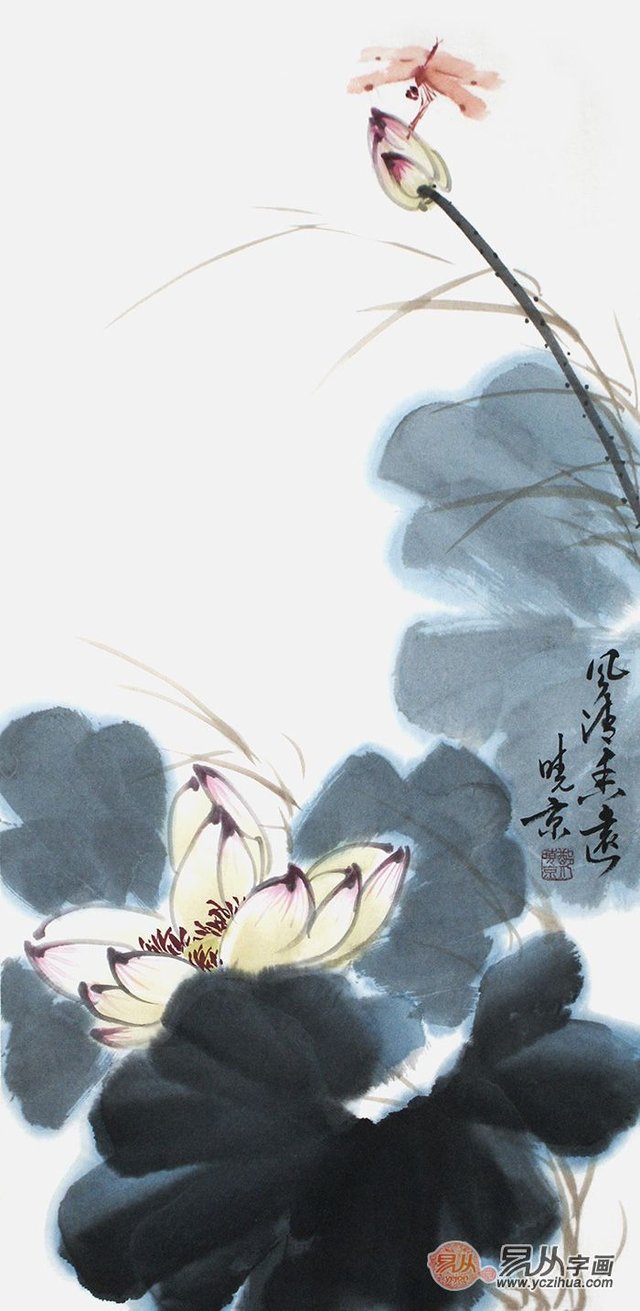 风清香远
晓京
易从
易从字画
www.yczihua.com